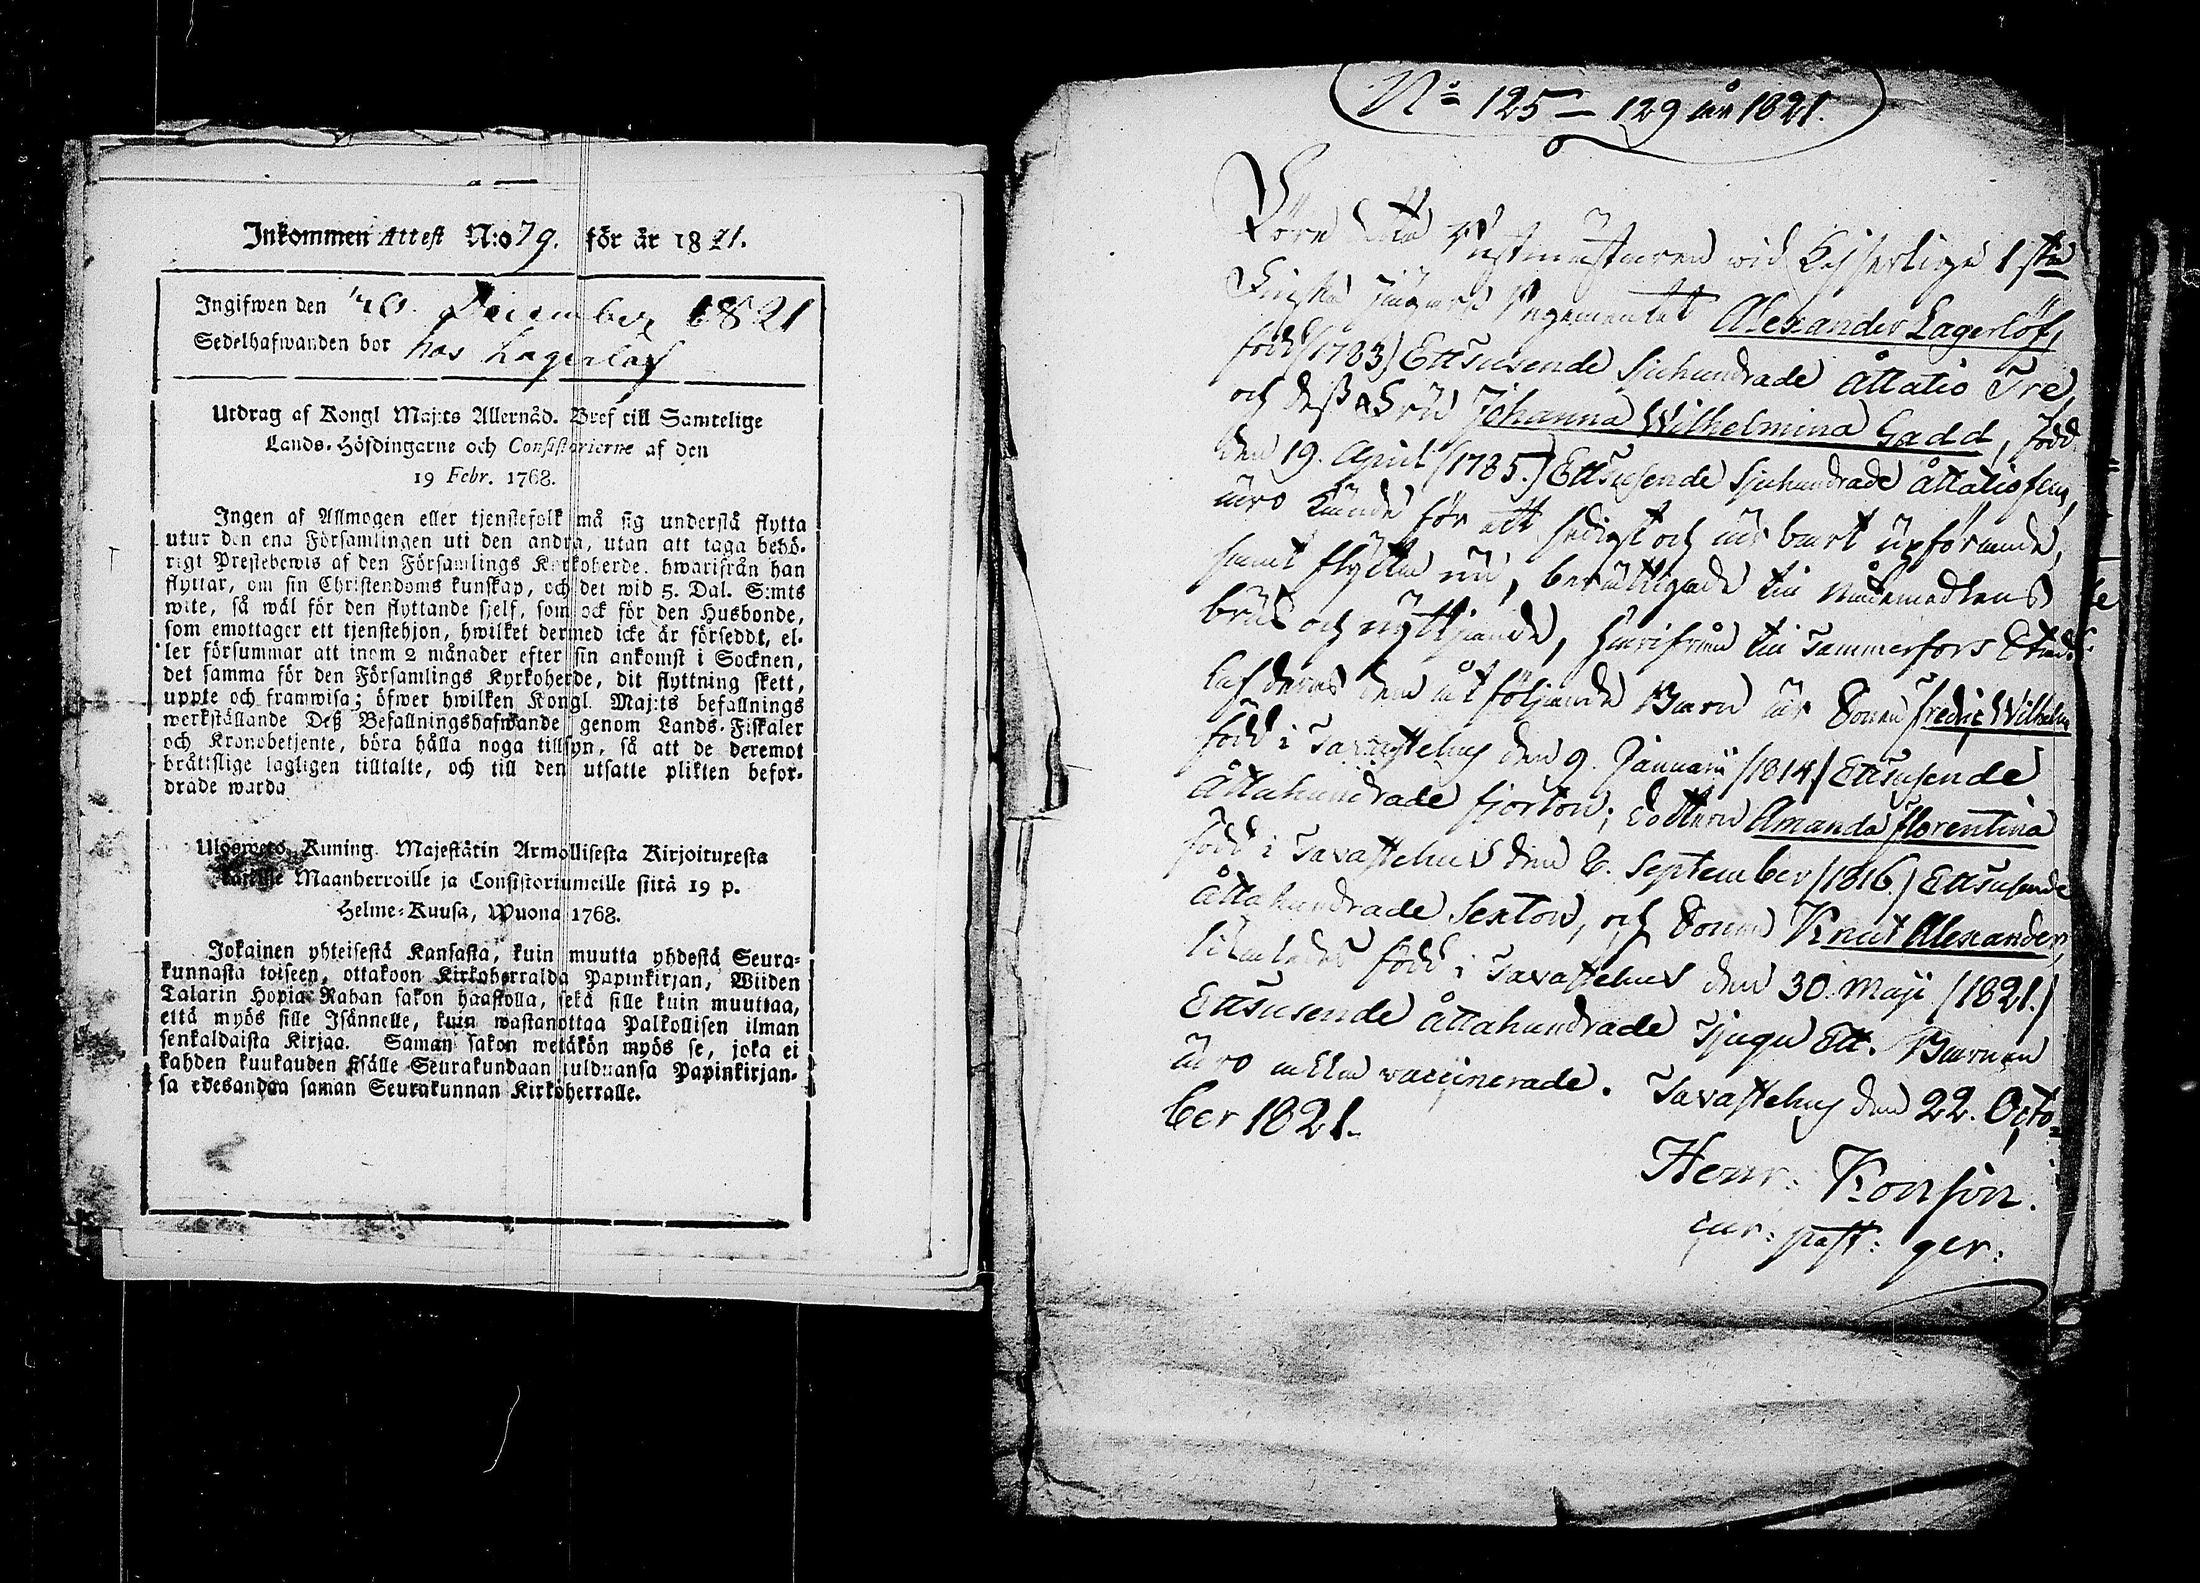 Inkommen Attest N:o 79. för år 1821.
Ingifwen den 20. December 1821
Sedelhafwanden bor hos Lagerlöf
Utdrag af Kongl Maj:ts Allernåd. Bref till Samtelige
Lands-Höfdingarne och Consistorierne af den
19 Febr. 1768.
Ingen af Allmogen eller tjenstefolk må sig understå flytta
utur den ena Församlingen uti den andra, utan att taga behö-
rigt Prestebewis af den Församlings Kyrkoherde, hwarifrån han
flyttar, om sin Christendoms kunskap, och det wid 5. Dal. S:mts
wite, så wäl för den flyttande sjelf, som ock för den Husbonde,
som emottager ett tjenstehjon, hwilket dermed icke är försedt, el-
ler försummar att inom 2 månader efter sin ankomst i Socknen,
det samma för den Församlings Kyrkoherde, dit flyttning skett,
uppte och framwisa; öfwer hwilken Kongl. Maj:ts befallnings
werkställande Deß Befallningshafwande genom Lands-Fiskaler
och Kronobetjente, böra hålla noga tillsyn, så att de deremot
bråttslige lagligen tilltalte, och till den utsatte plikten befor-
drade warda
Uloswets Kuning. Majestätin Armollisesta Kirjoituxesta
Maanherroille ja Consistoriumeille siitä 19 p.
Helme-Kuusa, Wuona 1768.
Jokainen yhteisestä Kansasta, kuin muutta yhdestä Seura-
kunnasta toiseen, ottakoon Kirkoherralda Papinkirjan, Wiiden
Talarin Hopia-Rahan sakon haastolla, sekä sille kuin muuttaa,
että myös sille Isännelle, kuin wastanottaa Palkollisen ilman
senkaldaista Kirjaa. Saman sakon wetäkön myös se, joka ei
kahden kuukauden sisälle Seurakundaan tulduansa Papinkirjan-
sa edesandaa saman Seurakunnan Kirkoherralle.
No 125 — 129 år 1821.
wid Kejserliga 1sta
Finska Jägare Regementet Alexander Lagerlöf,
född (1783) Ettusende Sjuhundrade Åttatio Tre,
och deß Fru Johanna Wilhelmina Gadd, född
den 19. April (1785.) Ettusende Sjuhundrade Åttatiofem,
äro kände för ett sedigt och ärbart upförande,
samt flytta nu, berättigade till Nådemedlens
bruk och nyttjande, härifrån till Tammerfors Stad.
Af deras dem åtföljande Barn är Sonen Fredric Wilhelm
född i Tavastehus den 9. Januarii (1814.) Ettusende
Åttahundrade fjorton; Dottern Amanda Florentina
född i Tavastehus den 6. September (1816.) Ettusende
Åttahundrade Sexton, och Sonen Knut Alexander,
likaledes född i Tavastehus den 30. Maji (1821.)
Ettusende Åttahundrade Tjugu Ett. Barnen
äro alla vaccinerade. Tavastehus den 22. Octo-
ber 1821.
Henr: Konsin.
cur: past: ger: